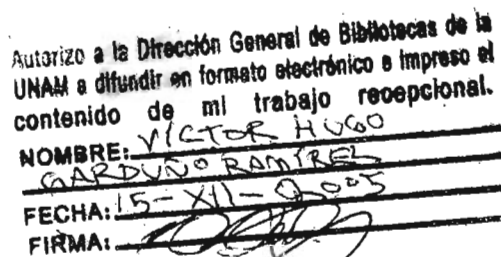 Autorizo a la Dirección General de Bibliotecas de la
UNAM a difundir en formato electrónico e impreso el
contenido de mi trabajo recepcional.
NOMBRE: VICTOR HUGO
GARDUÑO RAMÍREZ
FECHA: 15-XII-2005
FIRMA: